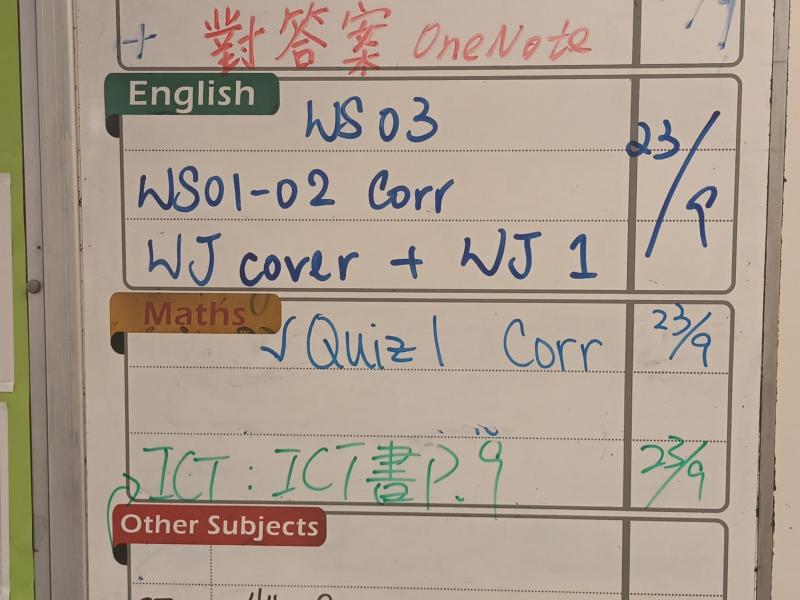 + 對答案 OneNote
English
WS 03
23/9
WS01-02 Corr
WJ cover + WJ 1
Maths
√ Quiz 1 Corr 23/9
ICT : ICT書 P. 9 23/9
Other Subjects